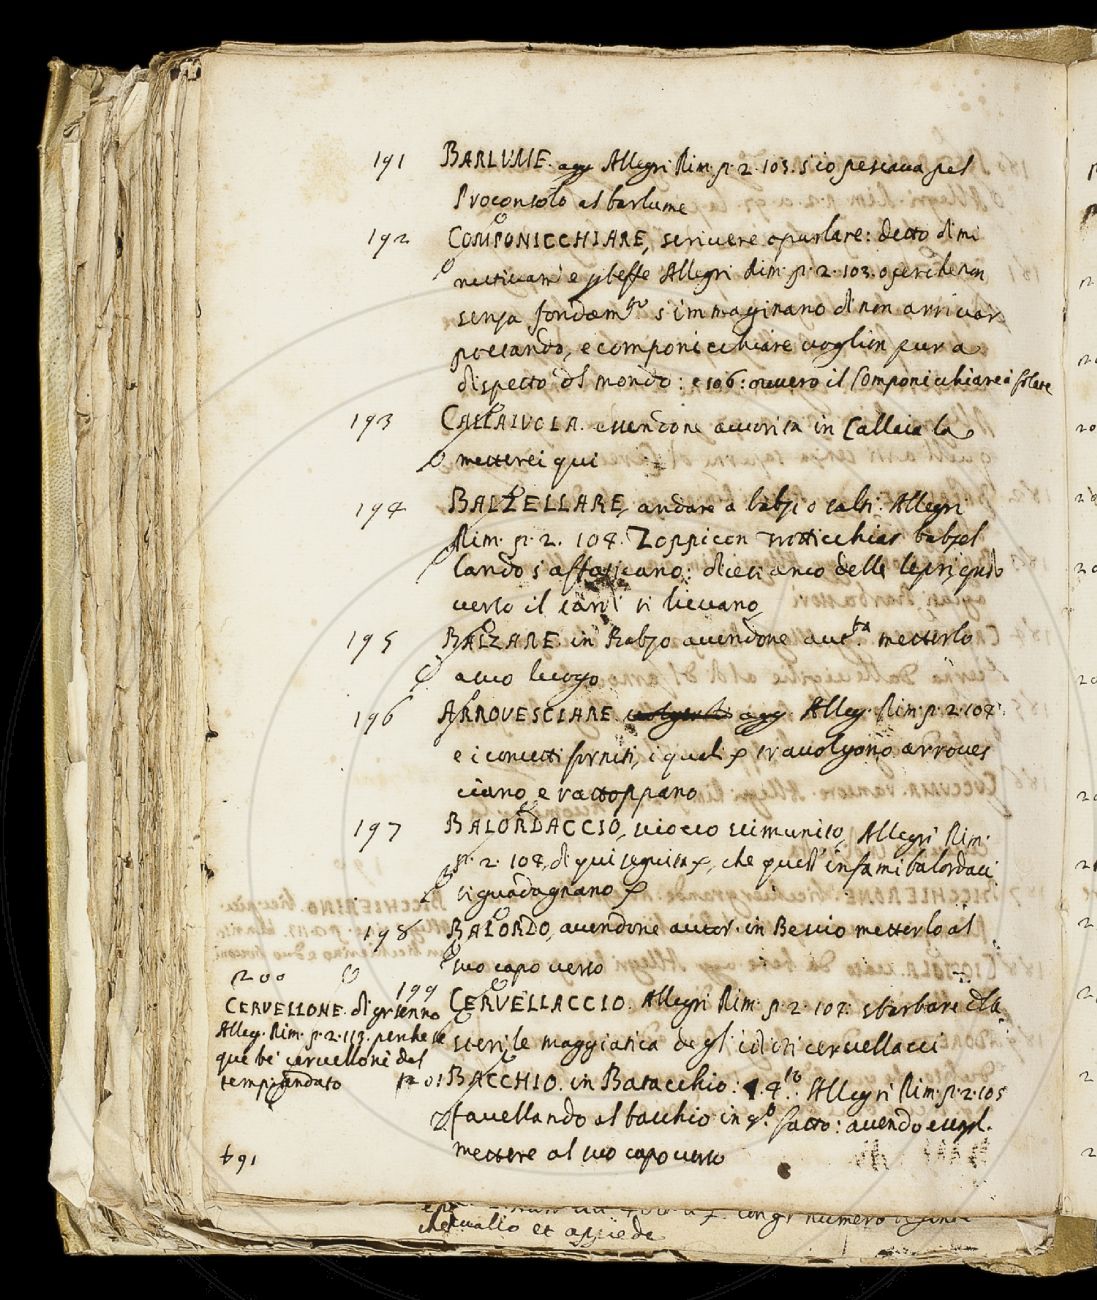 191 BARLUME. agg Allegri Rim. p. 2. 103. s'io pescava pel
Proconsolo al barlume
192 COMPONICCHIARE, scrivere o parlare: detto dimi
nutivam e p beffe Allegri Rim. p. 2. 103. o perche non
senza fondam.to s'immaginano di non arrivar
poetando, e componicchiare voglion pur a
dispetto del mondo: e 106: ovvero il Componicchiare
193 CALLAIUOLA. essendone autorita in Callaia la
metterei qui
194 BALZELLARE, andare a balzi o salti. Allegri
Rim. p. 2. 104. Zoppicon Trotticchiar balzel
lando s'affaticano: dicesi anco delle lepri, qndo
verso il tardi si lievano
195 BALZARE. in Balzo avendone aut.ta metterlo
a suo luogo
196 ARROVESCIARE. agg. Alleg. Rim. p. 2. 107.
e i concetti forniti, i quali p travolgono arroves
ciano e rattoppano
197 BALORDACCIO, sciocco scimunito, Allegri Rim.
p. 2. 108. di qui seguita p, che quest'infami balordacci
si guadagnano p
198 BALORDO, avendone autor. in Bescio metterlo al
suo capo verso
199 CERVELLACCIO. Allegri Rim. p. 2. 107. sbarbare dla
sterile maggiatica degl'idioti cervellacci
200
CERVELLONE. di gr senno
Alleg. Rim. p. 2. 113. perche se
que be' cervelloni del
temp andato
201 BACCHIO. in Batacchio: 4.to Allegri Rim. p. 2. 105
favellando al bacchio in q.o fatto: avendo esempl.
mettere al suo capo verso
191
che
cavallo et appiede